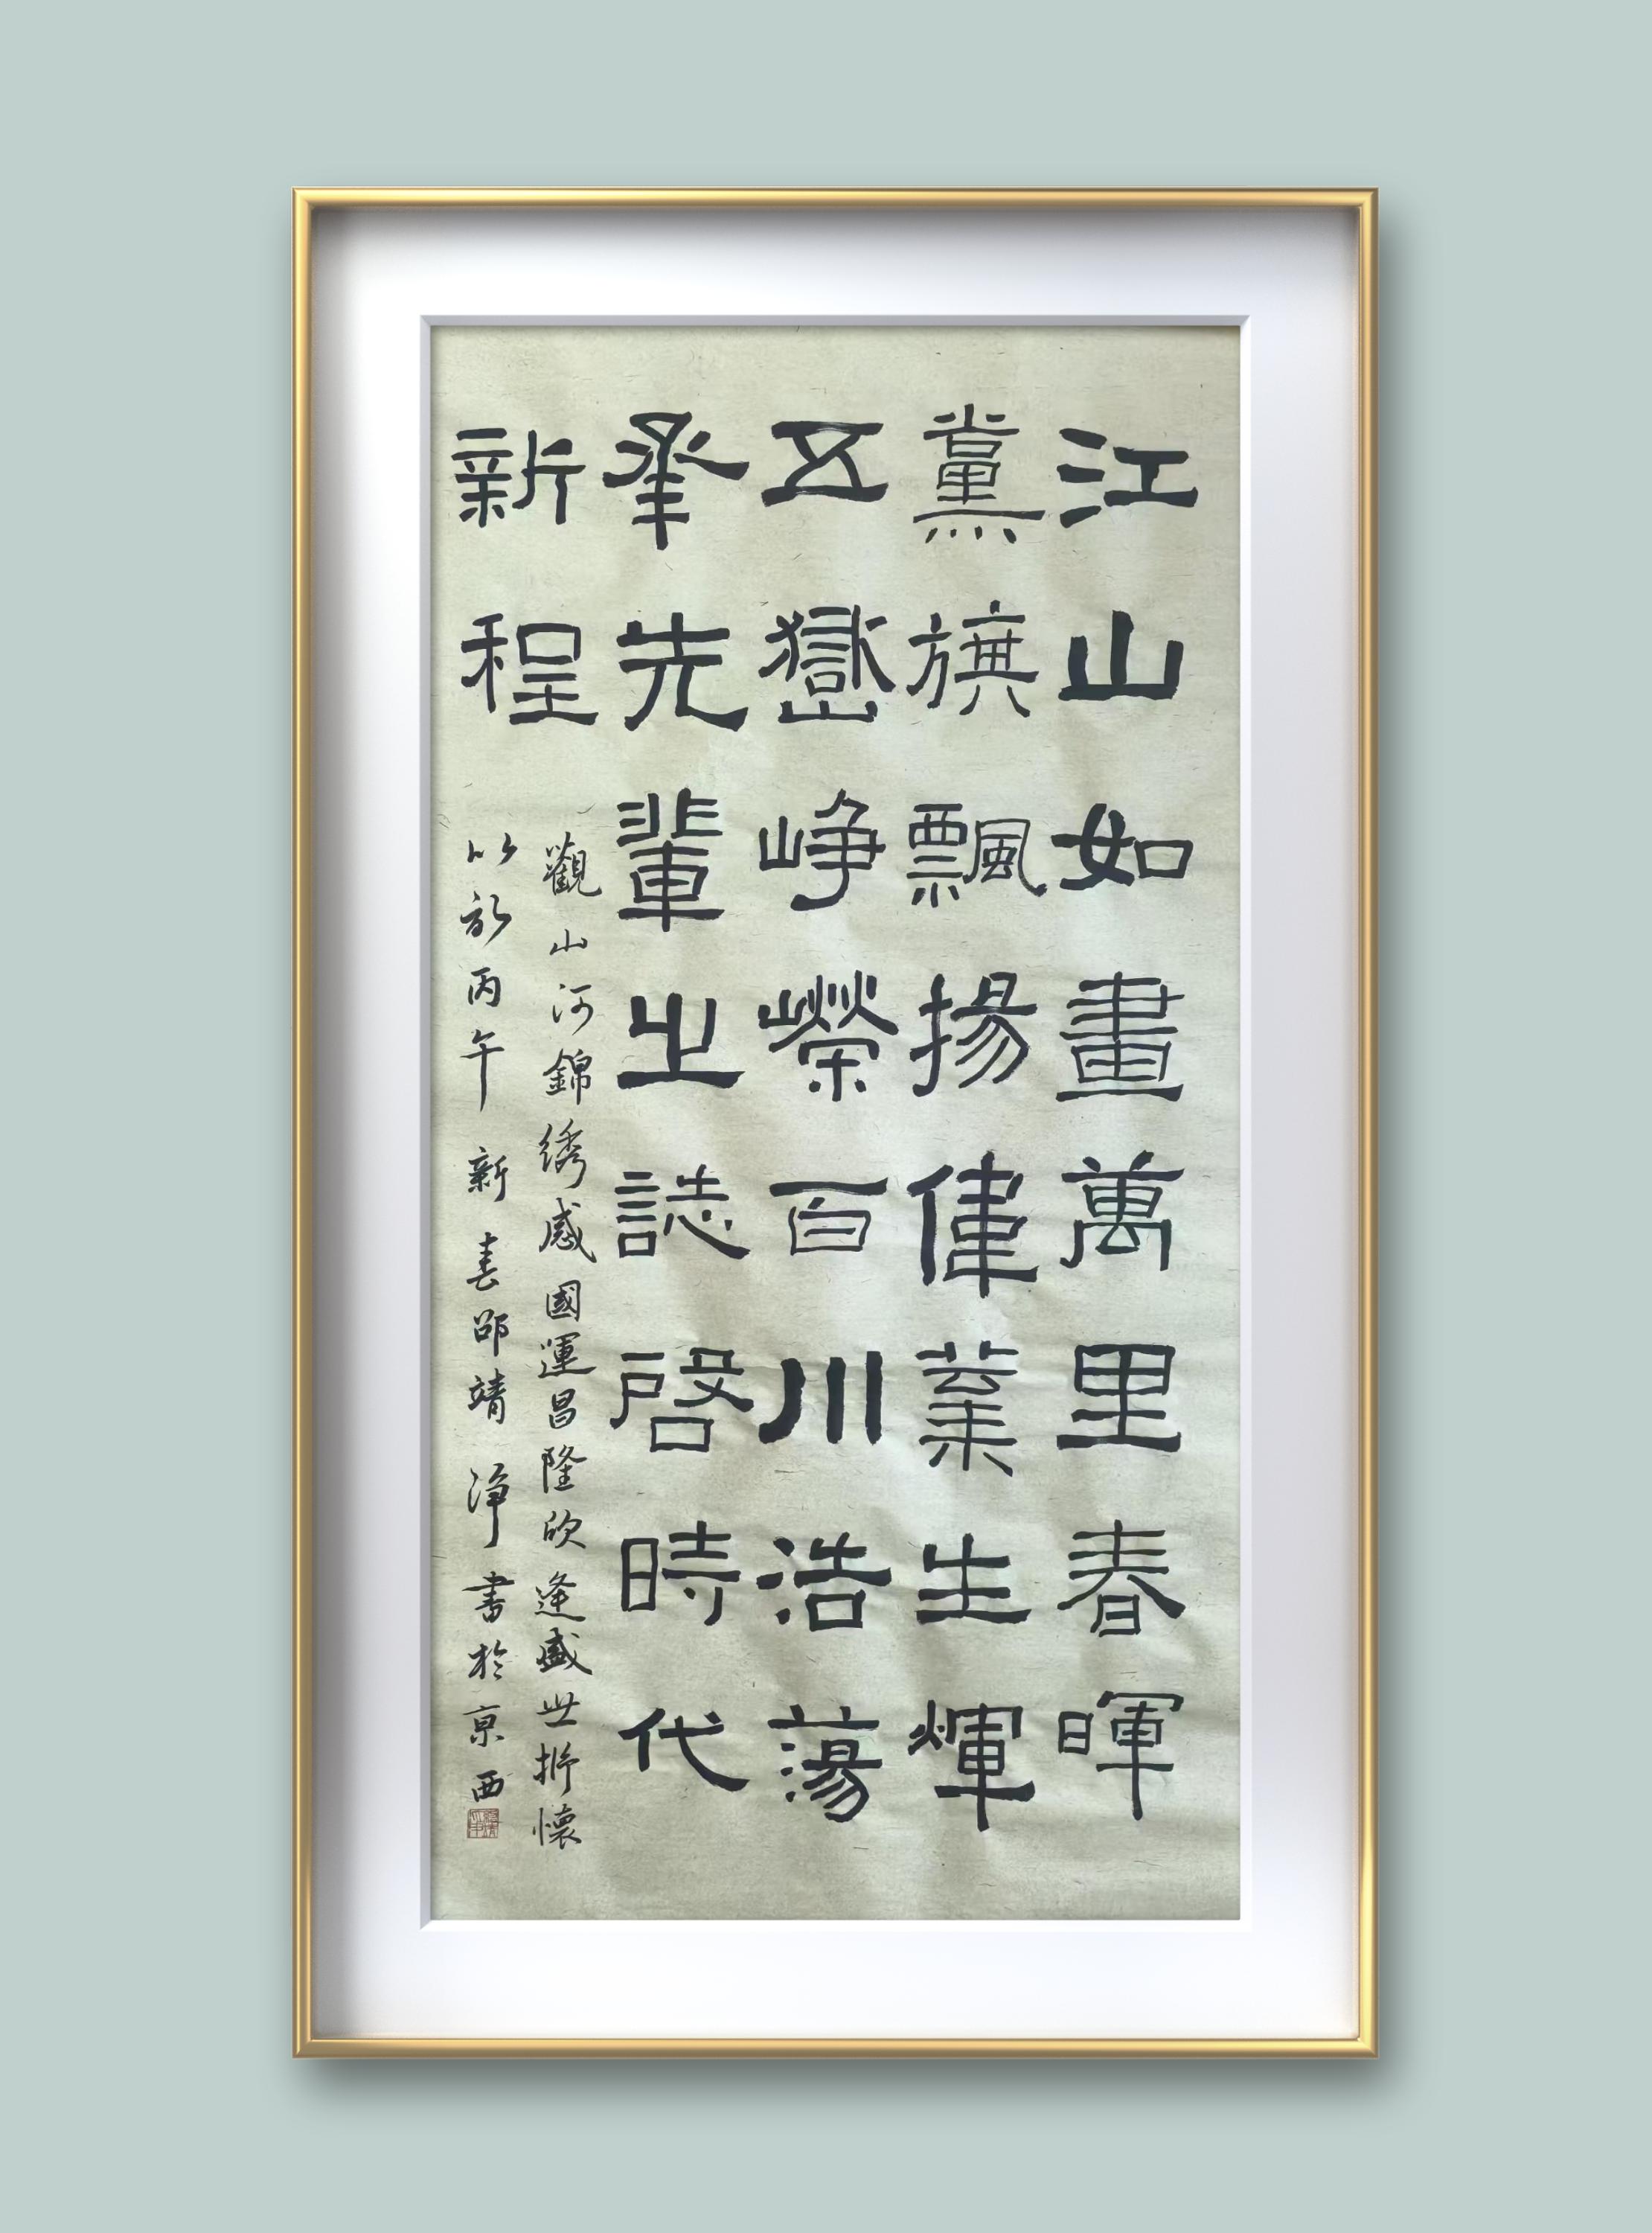 江山如畫萬里春暉
黨旗飄揚偉業生輝
五嶽崢嶸百川浩蕩
承先輩之誌啓時代
新程
觀山河錦绣感國運昌隆欣逢盛世抒懷
以記丙午新春邵靖淨書於京西